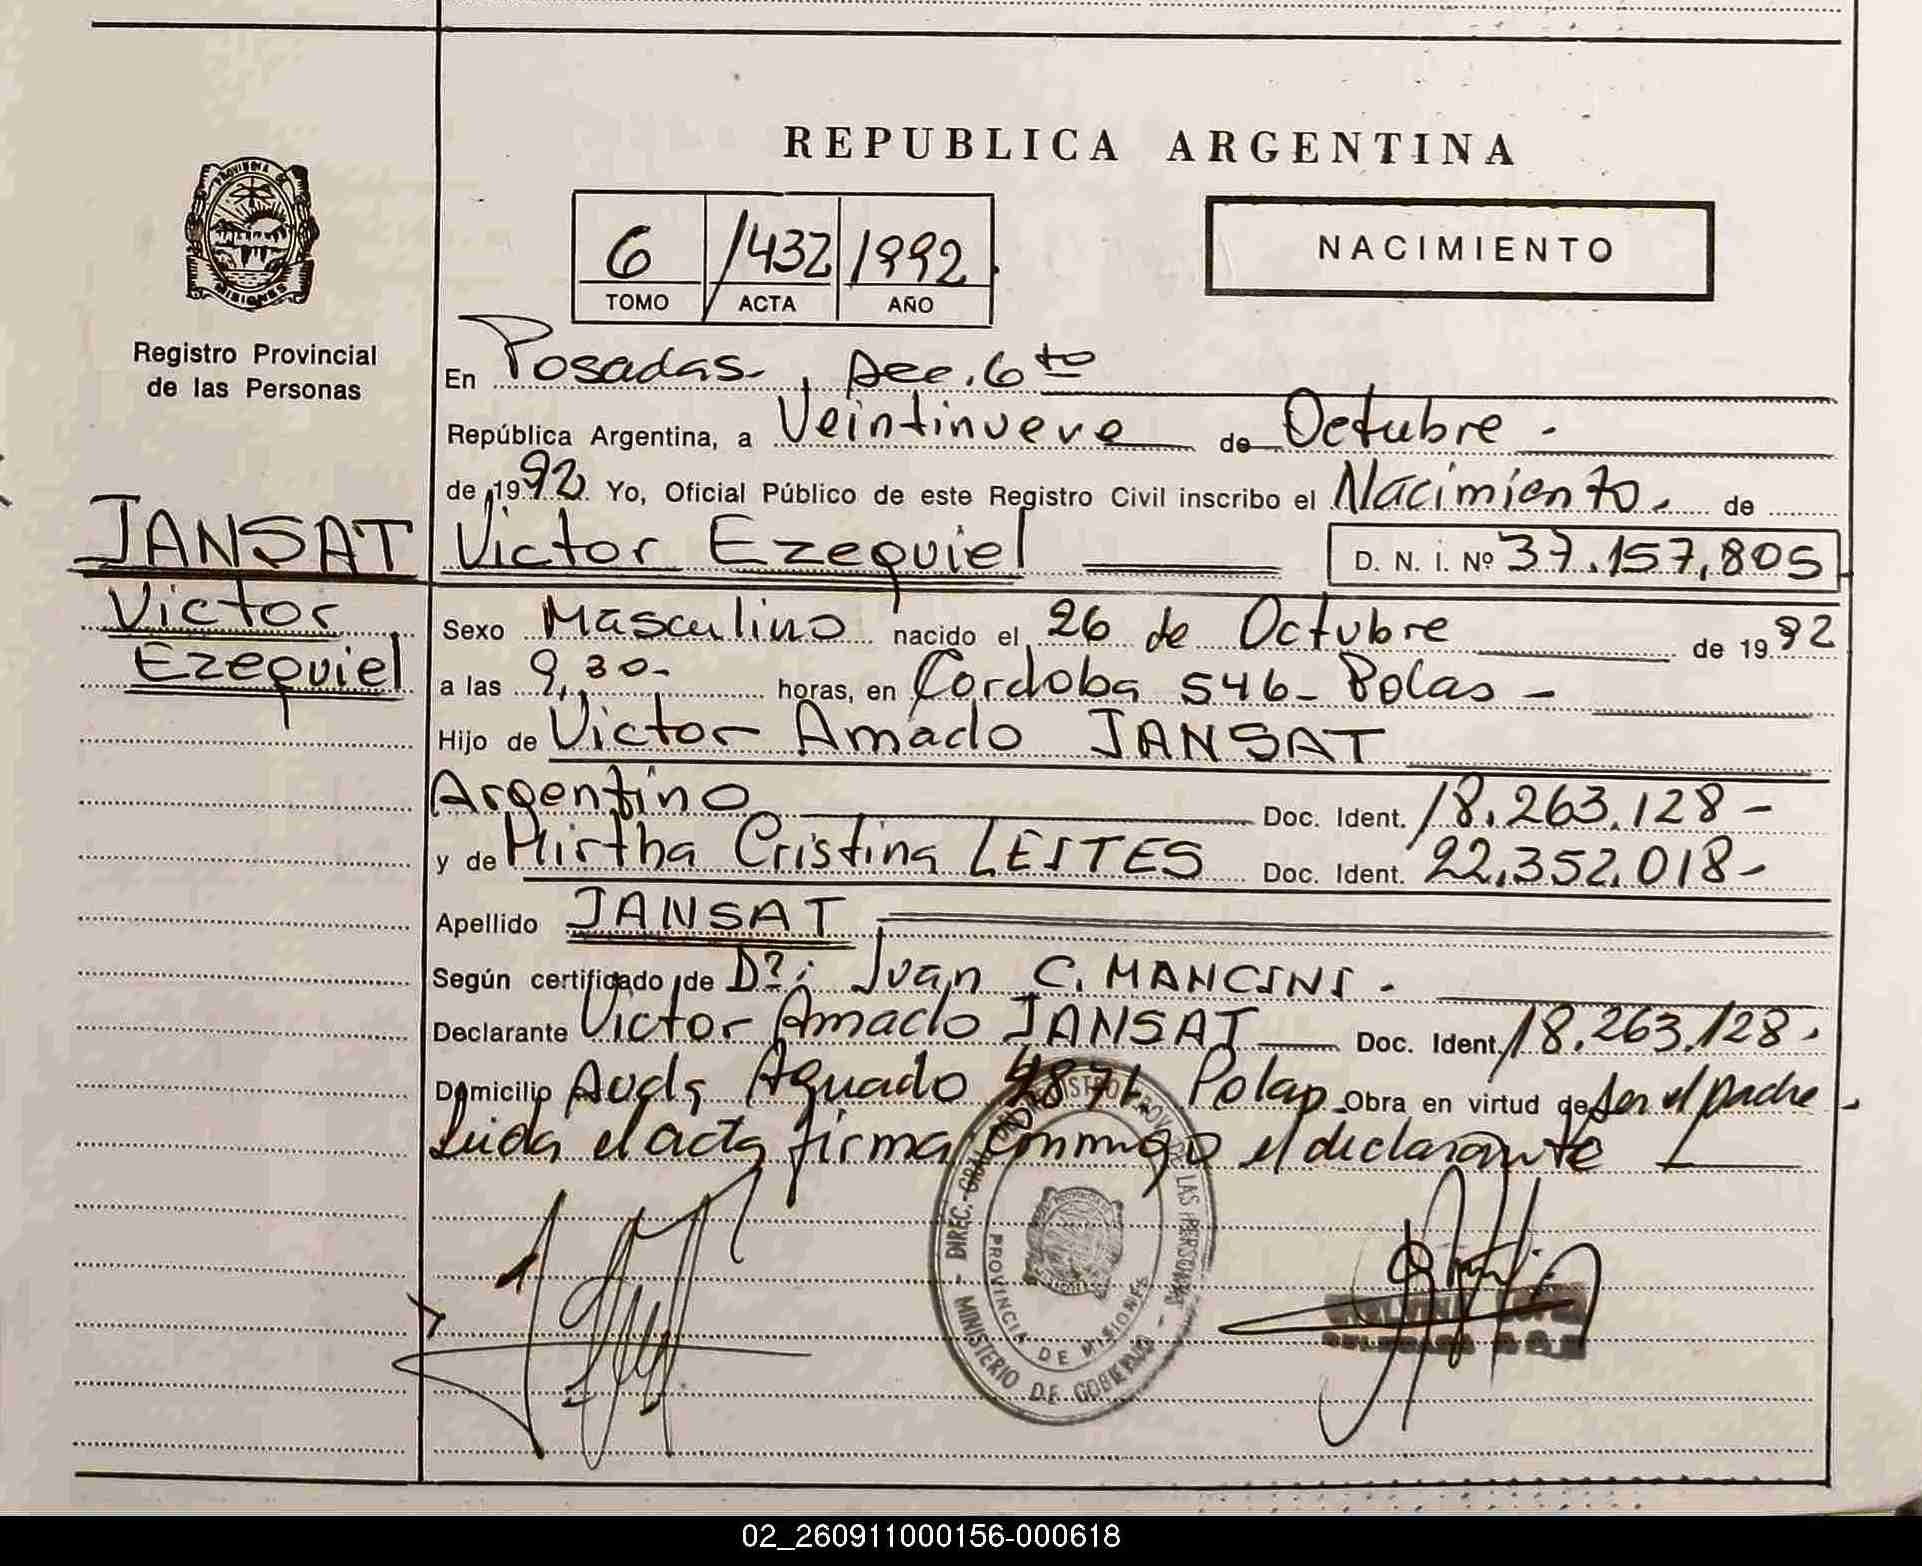 REPUBLICA ARGENTINA
6 1432 1992
TOMO ACTA AÑO
NACIMIENTO
PROVINCIA DE
MISIONES
Registro Provincial
de las Personas
JANSAT
Victor
Ezequiel
En Posadas, Sec. 6to
República Argentina, a Veintinueve de Octubre.
de 1992 Yo, Oficial Público de este Registro Civil inscribo el Nacimiento. de
Victor Ezequiel D. N. I. Nº 37.157.805
Sexo Masculino nacido el 26 de Octubre de 1992
a las 9,30- horas, en Cordoba 546- Pdas -
Hijo de Victor Amado JANSAT
Argentino Doc. Ident. 18.263.128-
y de Mirtha Cristina LEITES Doc. Ident. 22.352.018-
Apellido JANSAT
Según certificado de Dr: Juan C. MANCINI.
Declarante Victor Amado JANSAT Doc. Ident. 18.263.128.
Domicilio Avda Aguado Pdas Obra en virtud de ser el padre
Leida el acta firma conmigo el declarante
DIREC. GRAL. DEL REGISTRO PROV. DE LAS PERSONAS
MINISTERIO DE GOBIERNO
PROVINCIA DE MISIONES
02_260911000156-000618